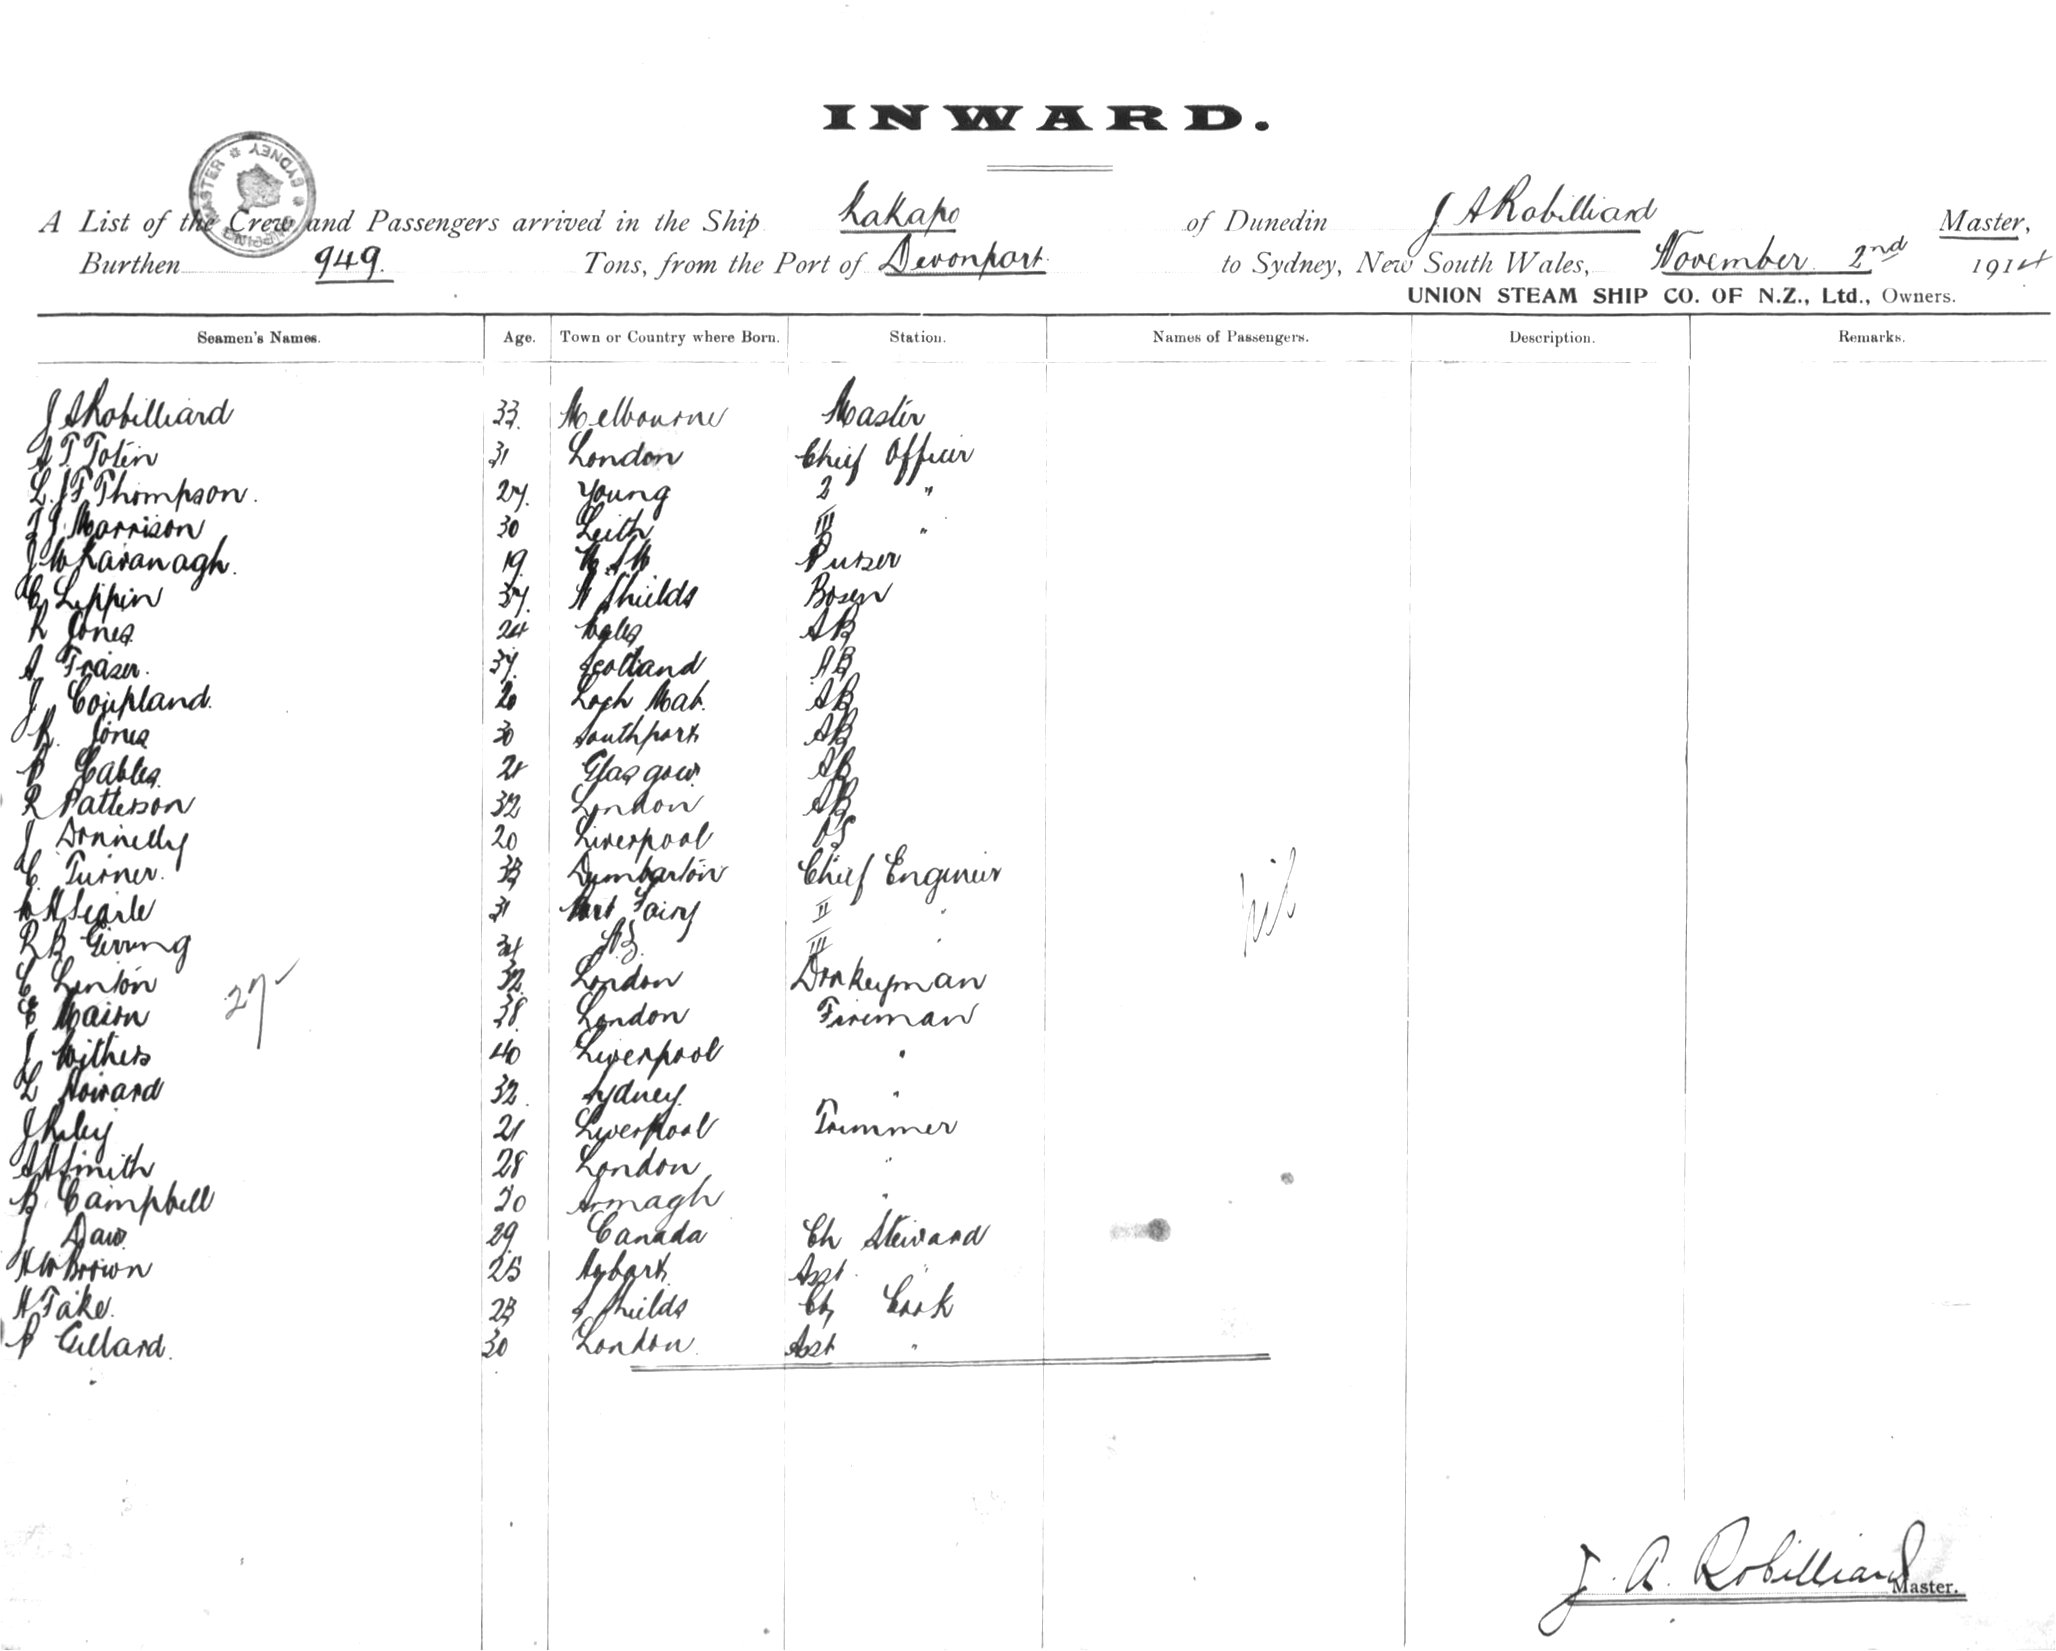 INWARD.
SYDNEY
A List of the Crew and Passengers arrived in the Ship Kakapo of Dunedin J A Robilliard Master,
Burthen 949. Tons, from the Port of Devonport to Sydney, New South Wales, November 2nd 1914
UNION STEAM SHIP CO. OF N.Z., Ltd., Owners.
Seamen's Names. Age. Town or Country where Born. Station. Names of Passengers. Description. Remarks.
J A Robilliard 33. Melbourne Master
A T Toten 31 London Chief Officer
L. J F Thompson. 27. Young 2 "
J. Morrison 30 Leith III "
J W Kavanagh. 19. N.S.W Purser
C Leppin 37. N Shields Bosen
R Jones 24 Wales AB
A Fraser. 37. Scotland AB
J Coupland. 20 Loch Mab. AB
R. Jones 30 Southport AB
P Gables. Glasgow AB
R Patterson 32 London AB
J Donnelly 20 Liverpool OS
C Turner. 33 Dumbarton Chief Engineer
W H Searle 31 Port Fairy II "
R B Girving 34 N.Z. III "
C Linton 32 London Donkeyman
E Mason 38 London Fireman
27
nil
J Withers 40 Liverpool "
L Howard 32. Sydney "
J Riley 21 Liverpool Trimmer
A A Smith 28 London "
B Campbell 20 Armagh "
J Daw 29. Canada Ch Steward
H W Brown 25 Hobart Asst. "
H Take. 23 S Shields Ch Cook
P Gillard. 30 London. Asst "
J. A. Robilliard
Master.